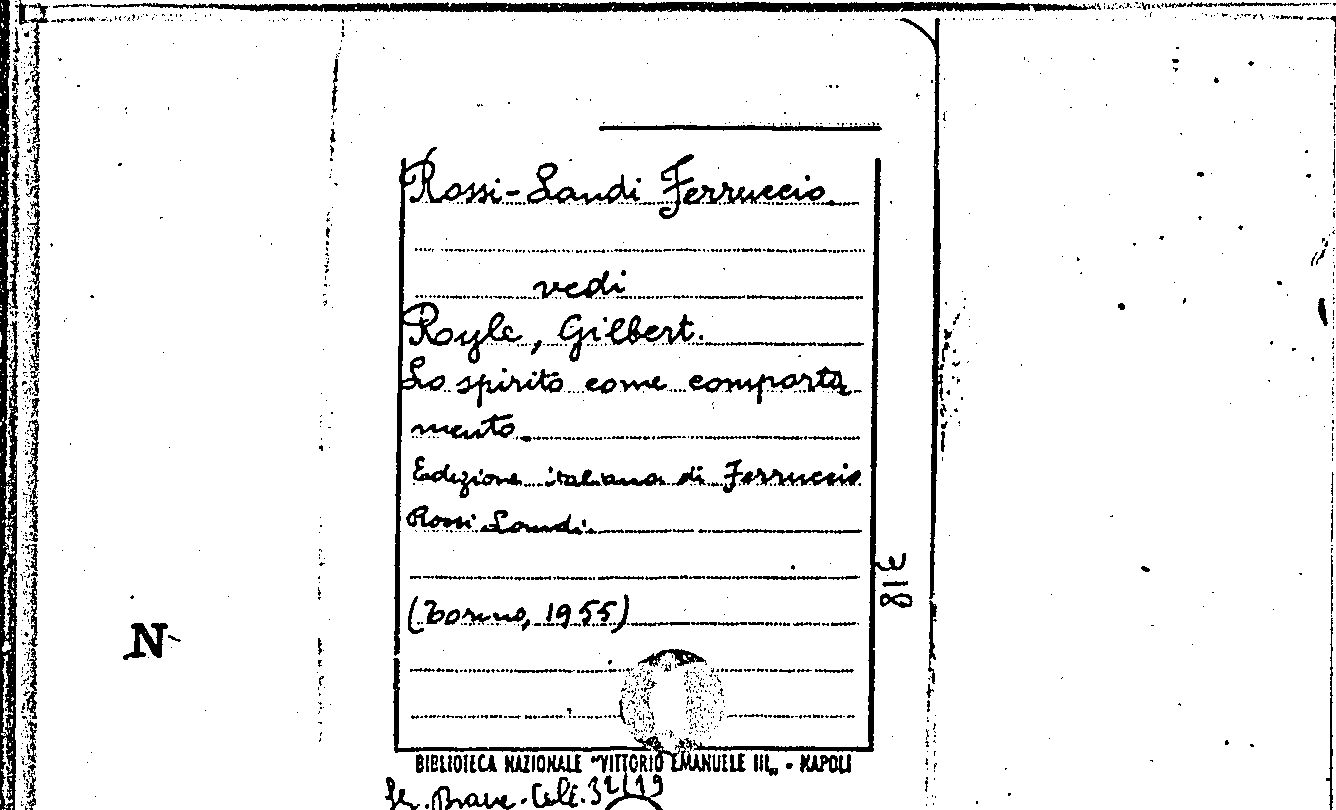 Rossi-Landi Ferruccio.
vedi
Ryle, Gilbert.
Lo spirito come comporta
mento.
Edizione italiana di Ferruccio
Rossi Landi.
318
(Torino, 1955)
N
BIBLIOTECA NAZIONALE "VITTORIO EMANUELE III„ - NAPOLI
Brave.